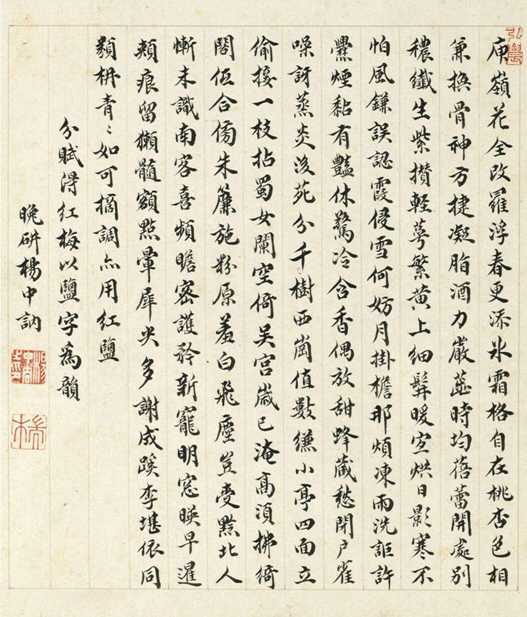 庾嶺花全改羅浮春更添氷霜格自在桃杏色相
兼換骨神方捷凝脂酒力嚴蕋時均蓓蕾開處別
穠纖生紫攢輕萼繁黃上細髯暖宜烘日影寒不
怕風鐮誤認霞侵雪何妨月掛檐那煩凍雨洗詎許
爨煙黏有豔休驚冷含香偶放甜蜂藏愁閉戶雀
噪訝蒸炎後苑分千樹西崗值數縑小亭四面立
偷接一枝拈蜀女闌空倚吳宮歲已淹高須拂綺
閣低合傍朱簾施粉原羞白飛塵豈受黔北人
慚未識南客喜頻瞻密護矜新寵明窓映早暹
頰痕留獺髓額點暈犀尖多謝成蹊李堪依同
類枏青〻如可摘調亦用紅鹽
分賦得紅梅以鹽字為韻
晚研楊中訥